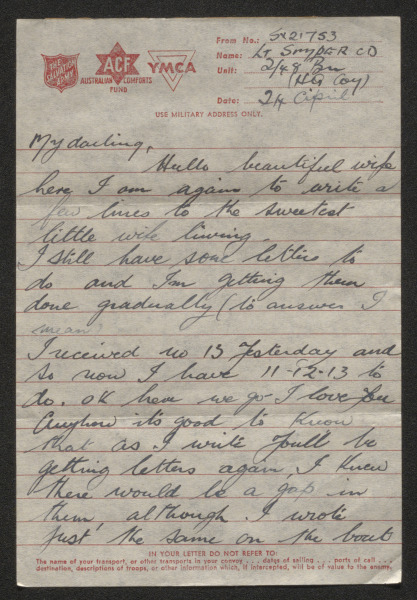 THE SALVATION ARMY
ACF
AUSTRALIAN COMFORTS
FUND
YMCA
From No.: SX21753
Name: Lt SNYDER CD
Unit: 2/48 Bn
(HQ Coy)
Date: 24 April
USE MILITARY ADDRESS ONLY.
My darling,
Hello beautiful wife
here I am again to write a
few lines to the sweetest
little wife living.
I still have some letters to
do and I'm getting them
done gradually (to answer I
mean)
I received no 13 Yesterday and
so now I have 11-12-13 to
do. OK here we go I love You
Anyhow it's good to know
that as I write you'll be
getting letters again, I knew
there would be a gap in
them, although I wrote
just the same on the boat
IN YOUR LETTER DO NOT REFER TO:
The name of your transport, or other transports in your convoy ... dates of sailing ... ports of call ...
destination, descriptions of troops, or other information which, if intercepted, will be of value to the enemy.